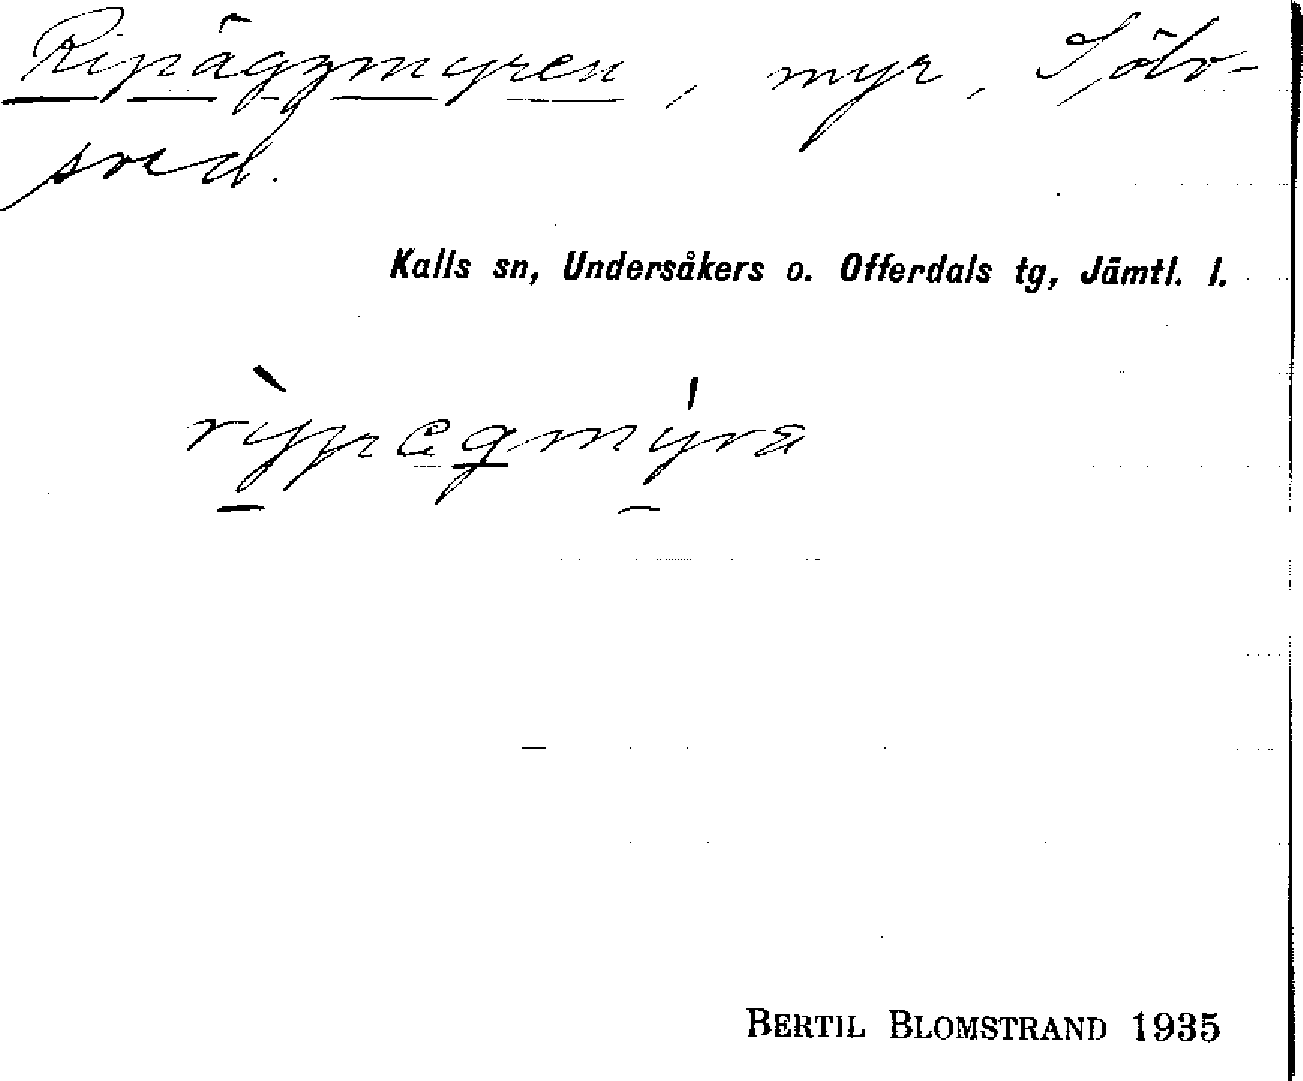 Ripäggmyren, myr, Sölv-
sved.
Kalls sn, Undersåkers o. Offerdals tg, Jämtl. l.
BERTIL BLOMSTRAND 1935